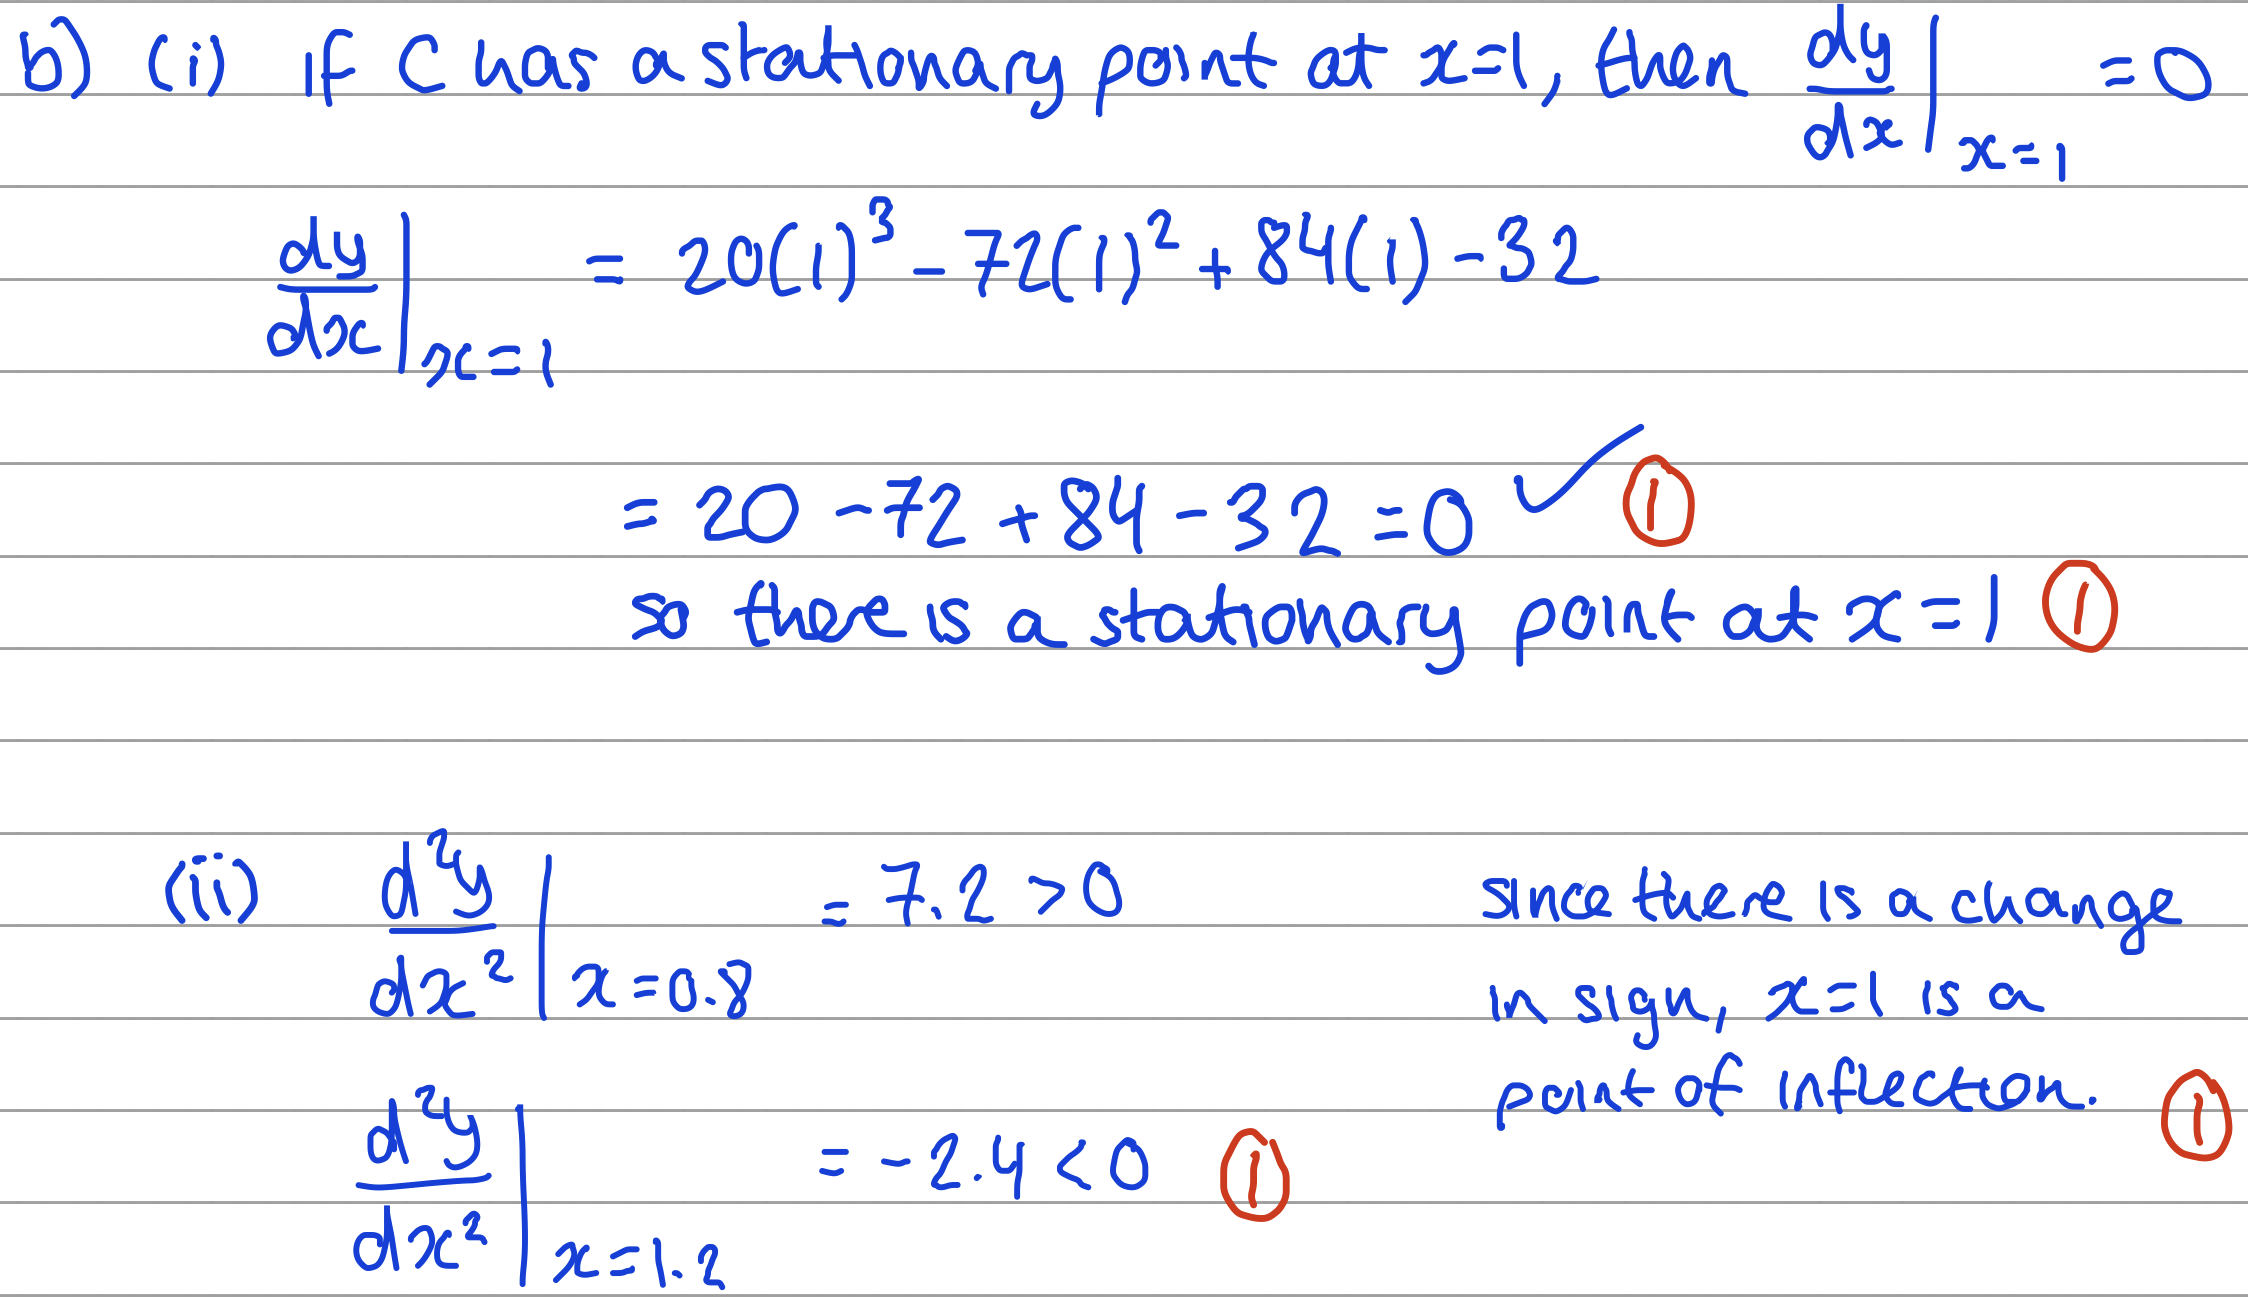 b) (i) if C has a stationary point at x=1, then dy/dx |x=1 = 0
dy/dx |x=1 = 20(1)³ - 72(1)² + 84(1) - 32
= 20 - 72 + 84 - 32 = 0 ✓ ①
so there is a stationary point at x = 1 ①
(ii) d²y/dx² |x=0.8 = 7.2 > 0
d²y/dx² |x=1.2 = -2.4 < 0 ①
since there is a change
in sign, x=1 is a
point of inflection. ①